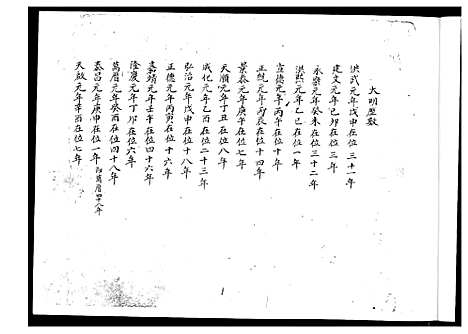 大明歷數
洪武元年戊申在位三十一年
建文元年己卯在位三年
永樂元年癸未在位三十二年
洪熙元年乙巳在位一年
宣德元年丙午在位十年
正統元年丙辰在位十四年
景泰元年庚午在位七年
天順元年丁丑在位八年
成化元年乙酉在位二十三年
弘治元年戊申在位十八年
正德元年丙寅在位十六年
嘉靖元年壬午在位四十六年
隆慶元年丁卯在位六年
萬曆元年癸酉在位四十八年
泰昌元年庚申在位一年 即萬曆四十八年
天啟元年辛酉在位七年
1